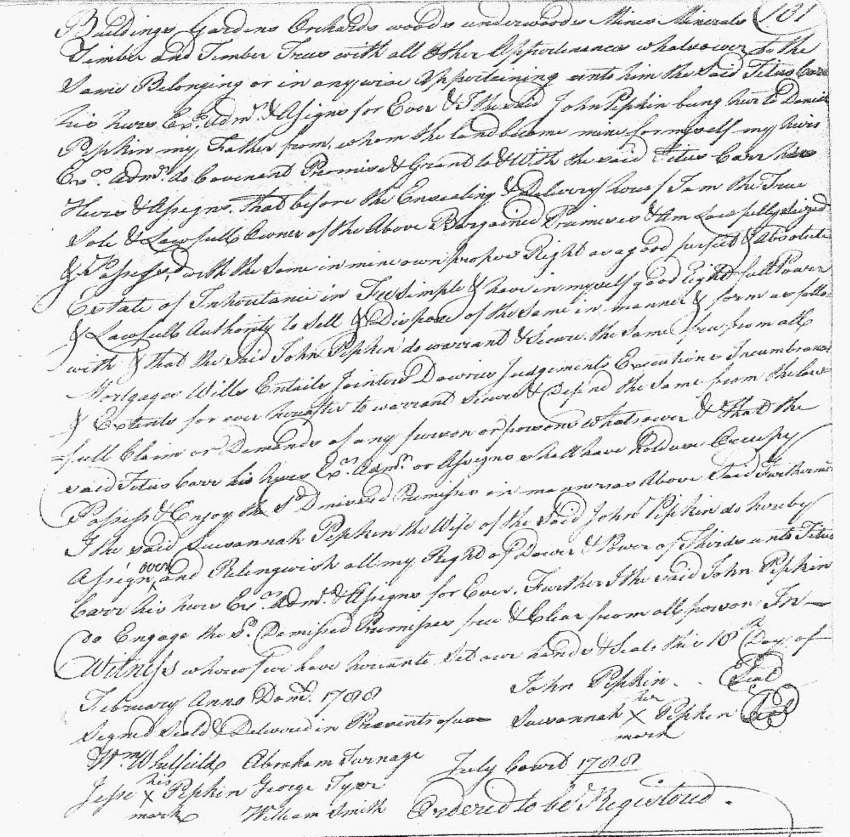 Buildings Gardens Orchards woods underwoods Mines Minerals 181
Timber and Timber Trees with all other Appurtenances whatsoever to the
Same Belonging or in any wise Appertaining unto him the Said Titus Carr
his heirs Exrs. Admrs. & Assigns for Ever & I the said John Pipkin being heir to Daniel
Pipkin my Father from whom the land became mine for myself my heirs
Exrs. Admrs. do Covenant Promise & Grant to & With the said Titus Carr his
Heirs & Assigns. That before the Ensealing & Delivery hereof I am the True
Sole & Lawfull Owner of the Above Bargained Primises & Am Lawfully seized
& Possessed with the same in mine own proper Right as a good perfect & absolute
Estate of Inheritance in Fee simple & have in myself good Right full Power
& Lawfull Authority to sell & Dispose of the same in manner & form as follo
with & that the said John Pipkin do warrant & Secure the same free from all
Mortgages Wills Entails Jointers Dowries Judgements Executions Incumbrances
& Extents for ever hereafter to warrant secure & Defend the same from the law
=full Claim or Demands of any person or persons whatsoever & that the
said Titus Carr his heirs Exrs. Admrs. or Assigns shall have hold use Occupy
Possess & Enjoy the Sd. Demised Premises in manner as Above Said Furthermore
I the said Savannah Pipkin the Wife of the Said John Pipkin do hereby
Assign over and Relinquish all my Right of Dower & Power of Thirds unto Titus
Carr his heirs Exrs. Admrs. & Assigns for Ever. Further I the said John Pipkin
do Engage the Sd. Demised Premises free & Clear from all person In
Witness whereof we have hereunto Set our hands & Seals this 18th Day of
February Anno Domi. 1788 John Pipkin Seal
Signed Seald & Delivered in Presents of us Savannah her X mark Pipkin Seal
Wm Whitfield Abraham Turnage July Court 1788
Jesse his X mark Pipkin George Tyer
William Smith Ordered to be Registered.